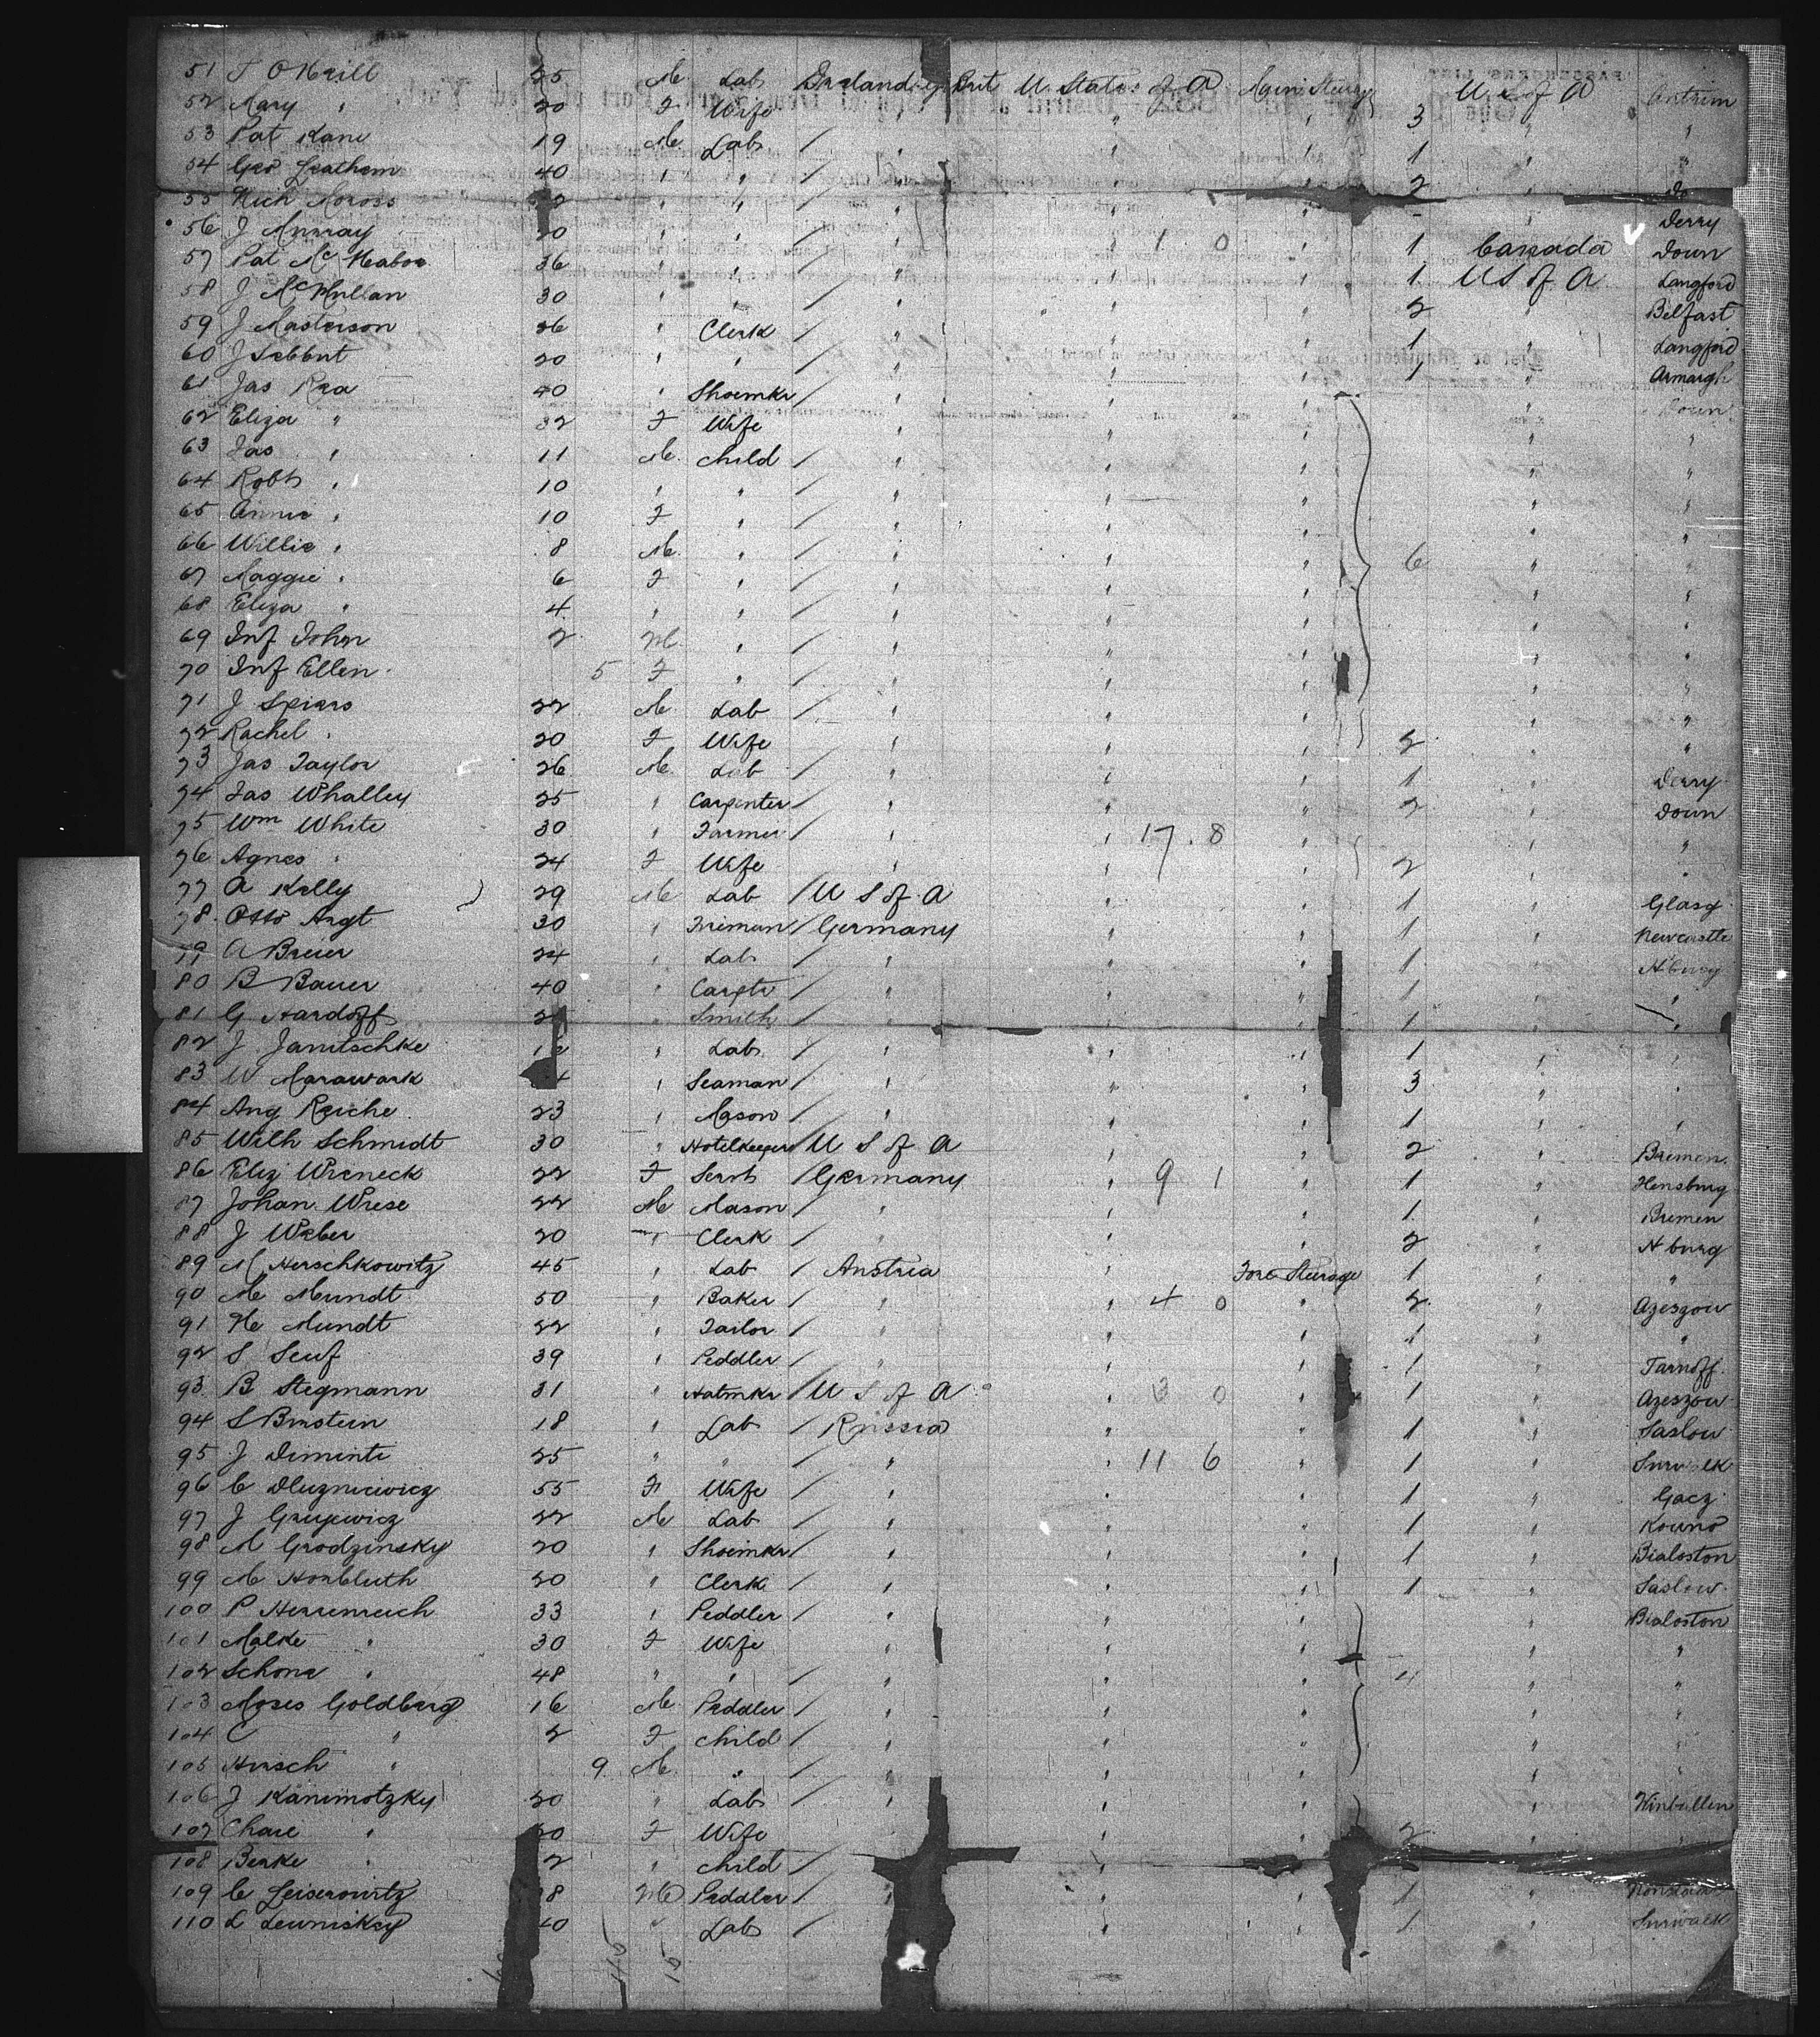 51 J O'Neill 25 M. Lab England by Brit U. States of A Main Steerg U S of A Antrim
52 Mary " 20 F Wife " " " 3 " "
53 Pat Kane 19 M. Lab / " " " 1 " "
54 Geo Leathem 40 " " / " " " 2 " Do
55 Mich Moross " " / " " " " Derry
56 J Murray 20 " " / " " 1 0 " 1 Canada Down
57 Pat McMabon 36 " " / " " " 1 U S of A Langford
58 J McMullan 30 " " / " " " 2 " Belfast
59 J Masterson 26 " Clerk / " " " 1 " Langford
60 J Sebbut 20 " " / " " " 1 " Armargh
61 Jas Rea 40 " Shoemkr / " " " " Down
62 Eliza " 32 F Wife " " " " "
63 Jas " 11 M. Child / " " " " "
64 Robt " 10 " " / " " " " "
65 Annie " 10 F " / " " " " "
66 Willie " 8 M. " / " " " 6 " "
67 Maggie " 6 F " / " " " " "
68 Eliza " 4 " " / " " " " "
69 Inf John 2 M " / " " " " "
70 Inf Ellen 5 F " / " " " " "
71 J Spiers 22 M Lab / " " " " "
72 Rachel " 20 F Wife " " " 2 " "
73 Jas Taylor 26 M. Lab / " " " 1 " Derry
74 Jas Whalley 25 " Carpenter / " " " 2 " Down
75 Wm White 30 " Farmer / " " 17. 8 " " "
76 Agnes " 24 F Wife " " " 2 " "
77 A Kelly 29 M Lab / U S of A " " 1 " Glasg
78 Otto Argt 30 " Fireman / Germany " " 1 " Newcastle
79 A Breuer 24 " Lab / " " " 1 " Hburg
80 B Bauer 40 " Carptr / " " " 1 " "
81 G Hardoff " Smith / " " " 1 " "
82 J Janitschke " Lab / " " " 1 " "
83 W Marawark " Seaman / " " " 3 " "
84 Aug Reiche 23 " Mason / " " " 1 " "
85 Wilh Schmidt 30 " Hotelkeeper / U S of A " " 2 " Bremen
86 Eliz Wreneck 22 F Servt / Germany " 9 1 " 1 " Hensburg
87 Johan Wrese 22 M Mason / " " " 1 " Bremen
88 J Weber 20 " Clerk / " " " 2 " Hburg
89 M Herschkowitz 45 " Lab / Austria " Fore Sturage 1 " "
90 M Mundt 50 " Baker / " " 4 0 " 2 " Azeszow
91 He Mundt 22 " Tailor / " " " 1 " "
92 S Seuf 39 " Peddler / " " " 1 " Tarnoff
93 B Stegmann 31 " Hatmkr / U S of A " 3 0 " 1 " Azeszow
94 S Brnstein 18 " Lab / Russia " " 1 " Saslow
95 J Diminti 25 " " / " " 11 6 " 1 " Suwalk
96 C Dluzniewicz 55 F Wife / " " " 1 " Gacz
97 J Gruyewicz 22 M Lab / " " " 1 " Kouno
98 M Grodzinsky 20 " Shoemkr / " " " 1 " Bialoston
99 M Hornbluth 20 " Clerk / " " " 1 " Saslow
100 P Herrenreich 33 " Peddler / " " " " Bialoston
101 Malke " 30 F Wife " " " " "
102 Schone " 48 " " / " " " 4 " "
103 Moses Goldberg 16 M. Peddler / " " " " "
104 C " 2 F Child / " " " " "
105 Hirsch " 9 M. " / " " " " "
106 J Kanimotzky 20 " Lab / " " " " Wirbullen
107 Chase " 20 F Wife " " " 2 " "
108 Beske " 2 " Child / " " " "
109 C Leiserowitz 8 M Peddler / " " " 1 "
110 L Lewniskey 40 " Lab / " " " 1 " Suwalk